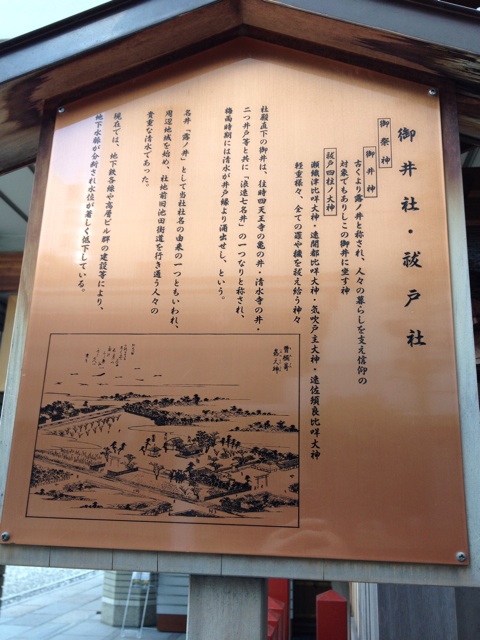 御井社・祓戸社
御祭神
御井神
古くより露ノ井と称され、人々の暮らしを支え信仰の
対象でもありしこの御井に坐す神
祓戸四柱ノ大神
瀬織津比咩大神・速開都比咩大神・気吹戸主大神・速佐須良比咩大神
軽重様々、全ての罪や穢を祓え給う神々
社殿直下の御井は、往時四天王寺の亀の井・清水寺の井・
二つ井戸等と共に「浪速七名井」の一つなりと称され、
梅雨時期には清水が井戸縁より湧出せし、という。
名井「露ノ井」として当社社名の由来の一つともいわれ、
周辺地域を始め、社地前旧池田街道を行き通う人々の
貴重な清水であった。
現在では、地下鉄各線や高層ビル群の建設等により、
地下水脈が分断され水位が著しく低下している。
曽根寿
露天神